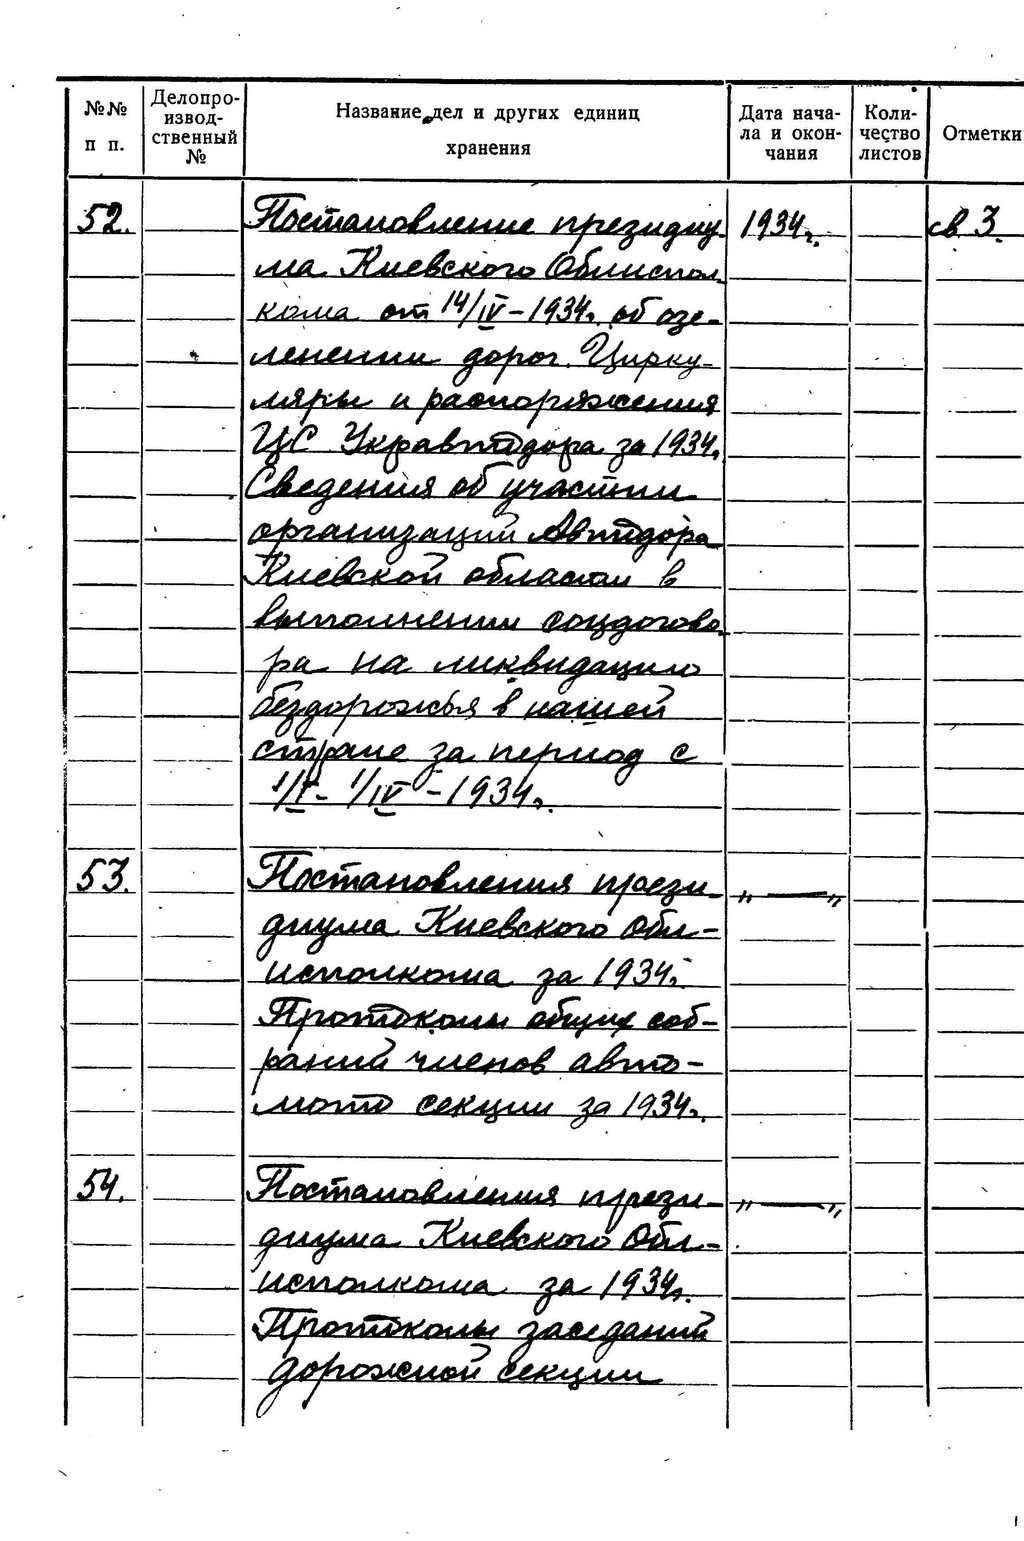 №№ п п.
Делопро-
извод-
ственный
№
Название дел и других единиц
хранения
Дата нача-
ла и окон-
чания
Коли-
чество
листов
Отметки
52. Постановление президиу- 1934г. св. 3.
ма Киевского Облиспол-
кома от 14/IV-1934г. об озе-
ленении дорог. Цирку-
ляры и распоряжения
ЦС Укравтодора за 1934г.
Сведения об участии
организаций Автодора
Киевской области в
выполнении соцдогово-
ра на ликвидацию
бездорожья в нашей
стране за период с
1/I- 1/IV-1934г.
53. Постановления прези- „ — „
диума Киевского Обл-
исполкома за 1934г.
Протоколы общих соб-
раний членов авто-
мото секции за 1934г.
54. Постановления прези- „ — „
диума Киевского Обл-
исполкома за 1934г.
Протоколы заседаний
дорожной секции